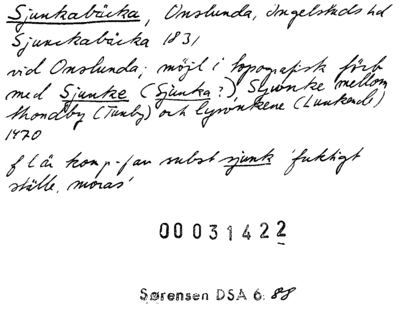 Sjunkabäcka, Onslunda, Ingelstads hd
Sjunckabäcka 1831
vid Onslunda; möjl i topografisk förb
med Sjunke (Sjunka?), Syonke mellom
thondby (Tunby) och lysønkene (Lunkende)
1470
f l är komp-fav subst sjunk 'fuktigt
ställe, moras'
00031422
Sørensen DSA 6: 88